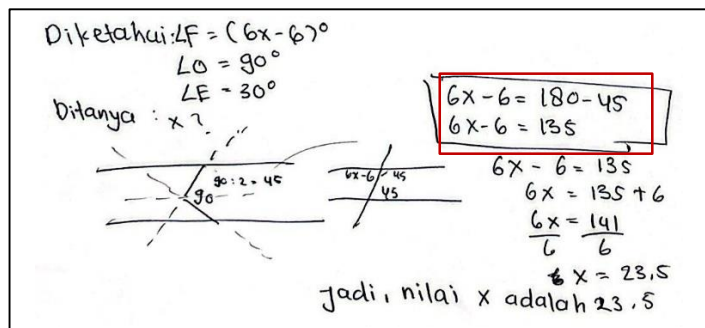 Diketahui: ∠F = (6x-6)°
∠O = 90°
∠E = 30°
Ditanya : x ?
90 : 2 = 45
90
6x-6
45
45
6x-6 = 180-45
6x-6 = 135
6x - 6 = 135
6x = 135 + 6
6x = 141
6 6
x = 23,5
Jadi, nilai x adalah 23,5